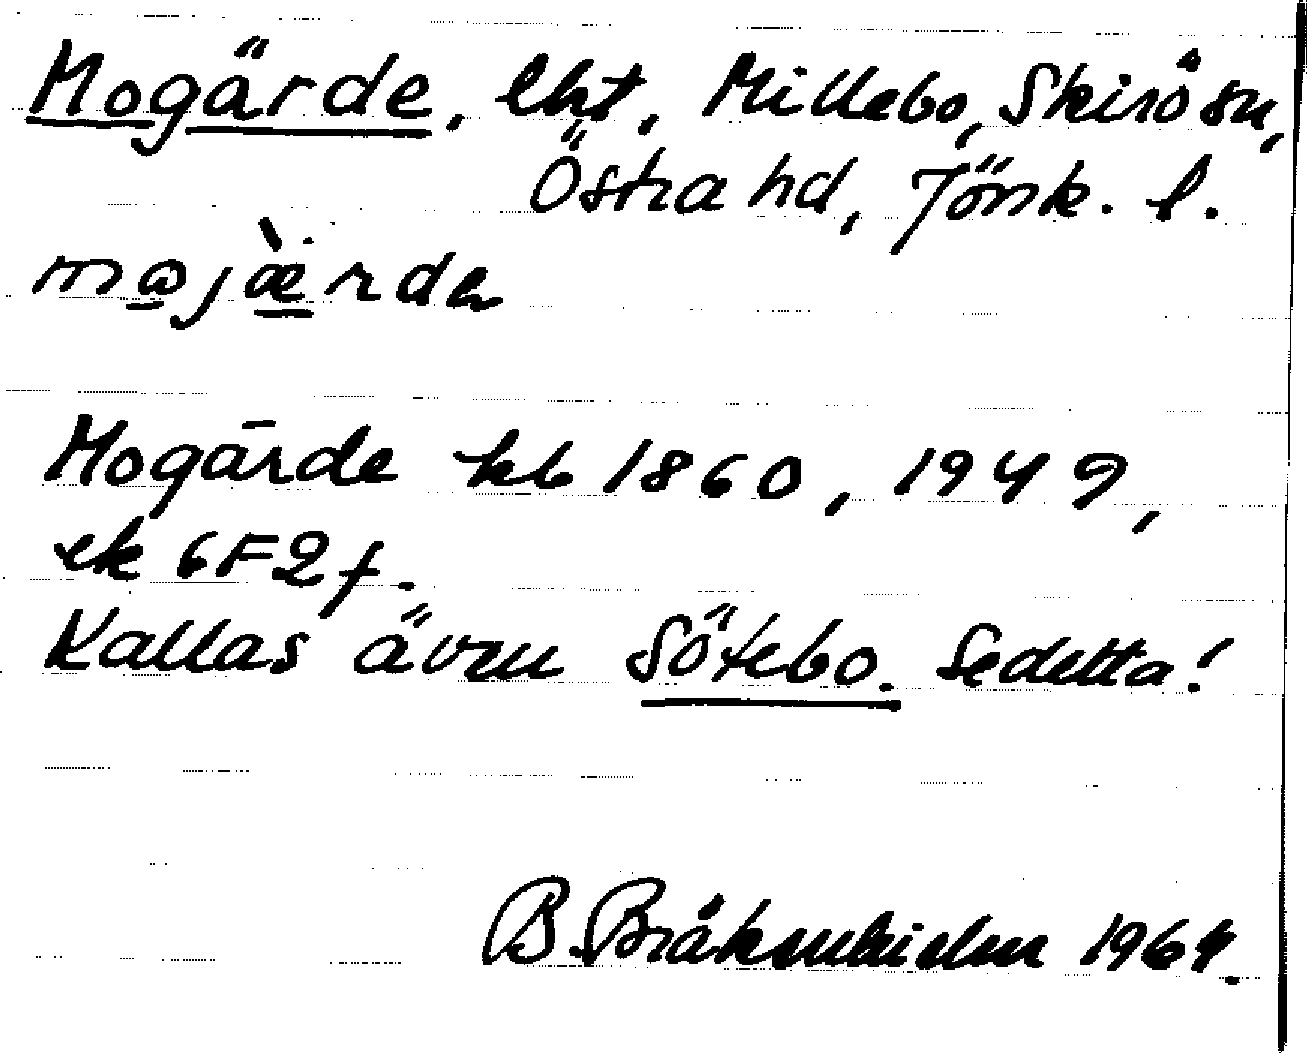 Mogärde, lht, Millebo, Skirö sn,
Östra hd, Jönk. l.
mo̲jæ̲̀rdə
Mogärde kb 1860, 1949,
ek 6F2f.
Kallas även Sötebo. Se detta!
B. Bråkenhielm 1964.